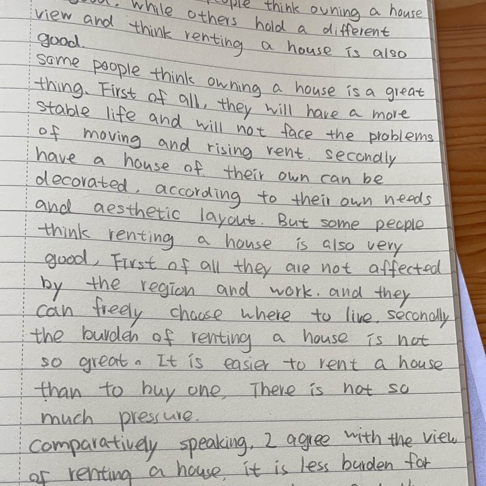 while others hold a different
people think owning a house
view and think renting a house is also
good.
some people think owning a house is a great
thing. First of all, they will have a more
stable life and will not face the problems
of moving and rising rent. secondly
have a house of their own can be
decorated, according to their own needs
and aesthetic layout. But some people
think renting a house is also very
good, First of all they are not affected
by the region and work. and they
can freely choose where to live, seconally
the burden of renting a house is not
so great. It is easier to rent a house
than to buy one, There is not so
much pressure.
comparatively speaking, I agree with the view
of renting a house, it is less burden for